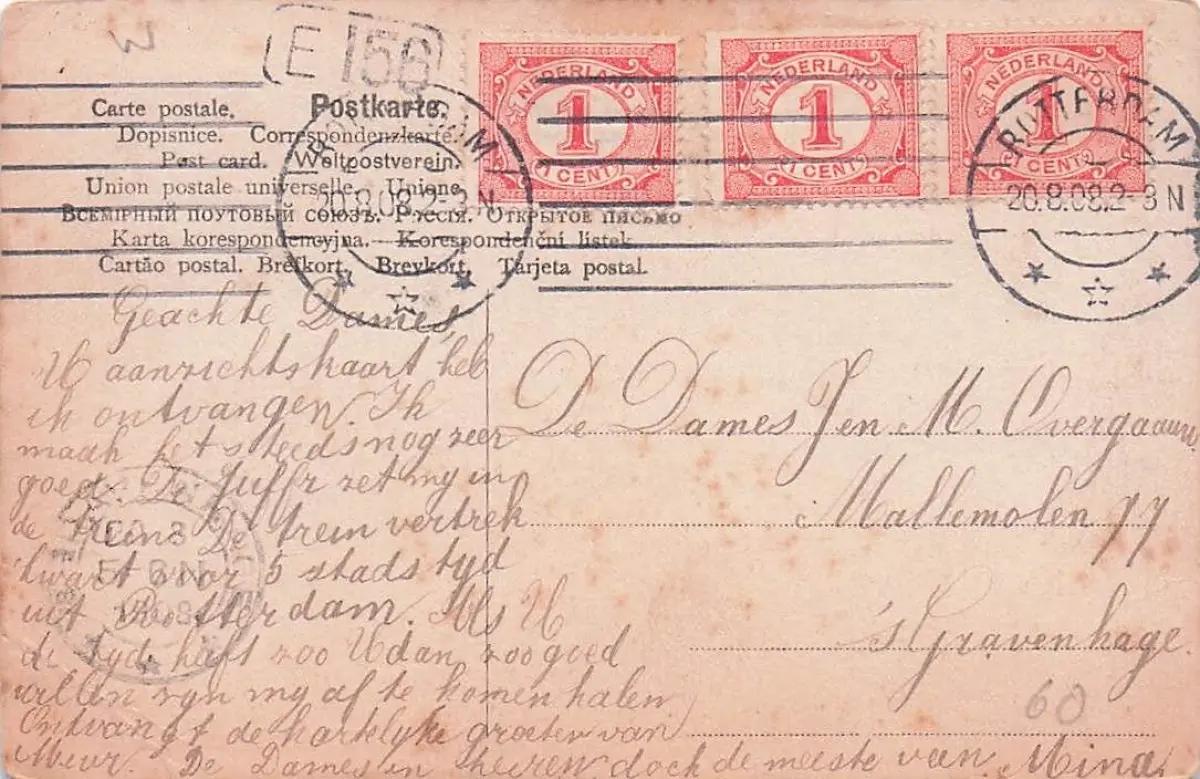 W
E 156
Carte postale. Postkarte.
Dopisnice. Correspondenzkarte.
Post card. Weltpostverein.
Union postale universelle. Unione
Всемірный поутовый союзъ. Россія. Открытое письмо
Karta korespondencyjna. Korespondenční listek.
Cartão postal. Brefkort. Brevkort. Tarjeta postal.
NEDERLAND
1
(1 CENT)
NEDERLAND
1
(1 CENT)
NEDERLAND
1
(1 CENT)
20.8.08.2-3 N
ROTTERDAM
20.8.08.2-3 N
Geachte Dames,
U aanzichtskaart heb
ik ontvangen. Ik
maak het steeds nog zeer
goed. De Juffr zet my in
de trein. De trein vertrek
kwart voor 5 stads tyd
uit Rotterdam. Als U
de tyd heft zoo U dan zoo goed
willen zyn my af te komen halen
Ontvangt de hartelyke groeten van
Mevr. De Dames en Heeren doch de meeste van Mina.
De Dames J en M. Overgaauw
Mallemolen 77
's Gravenhage.
60